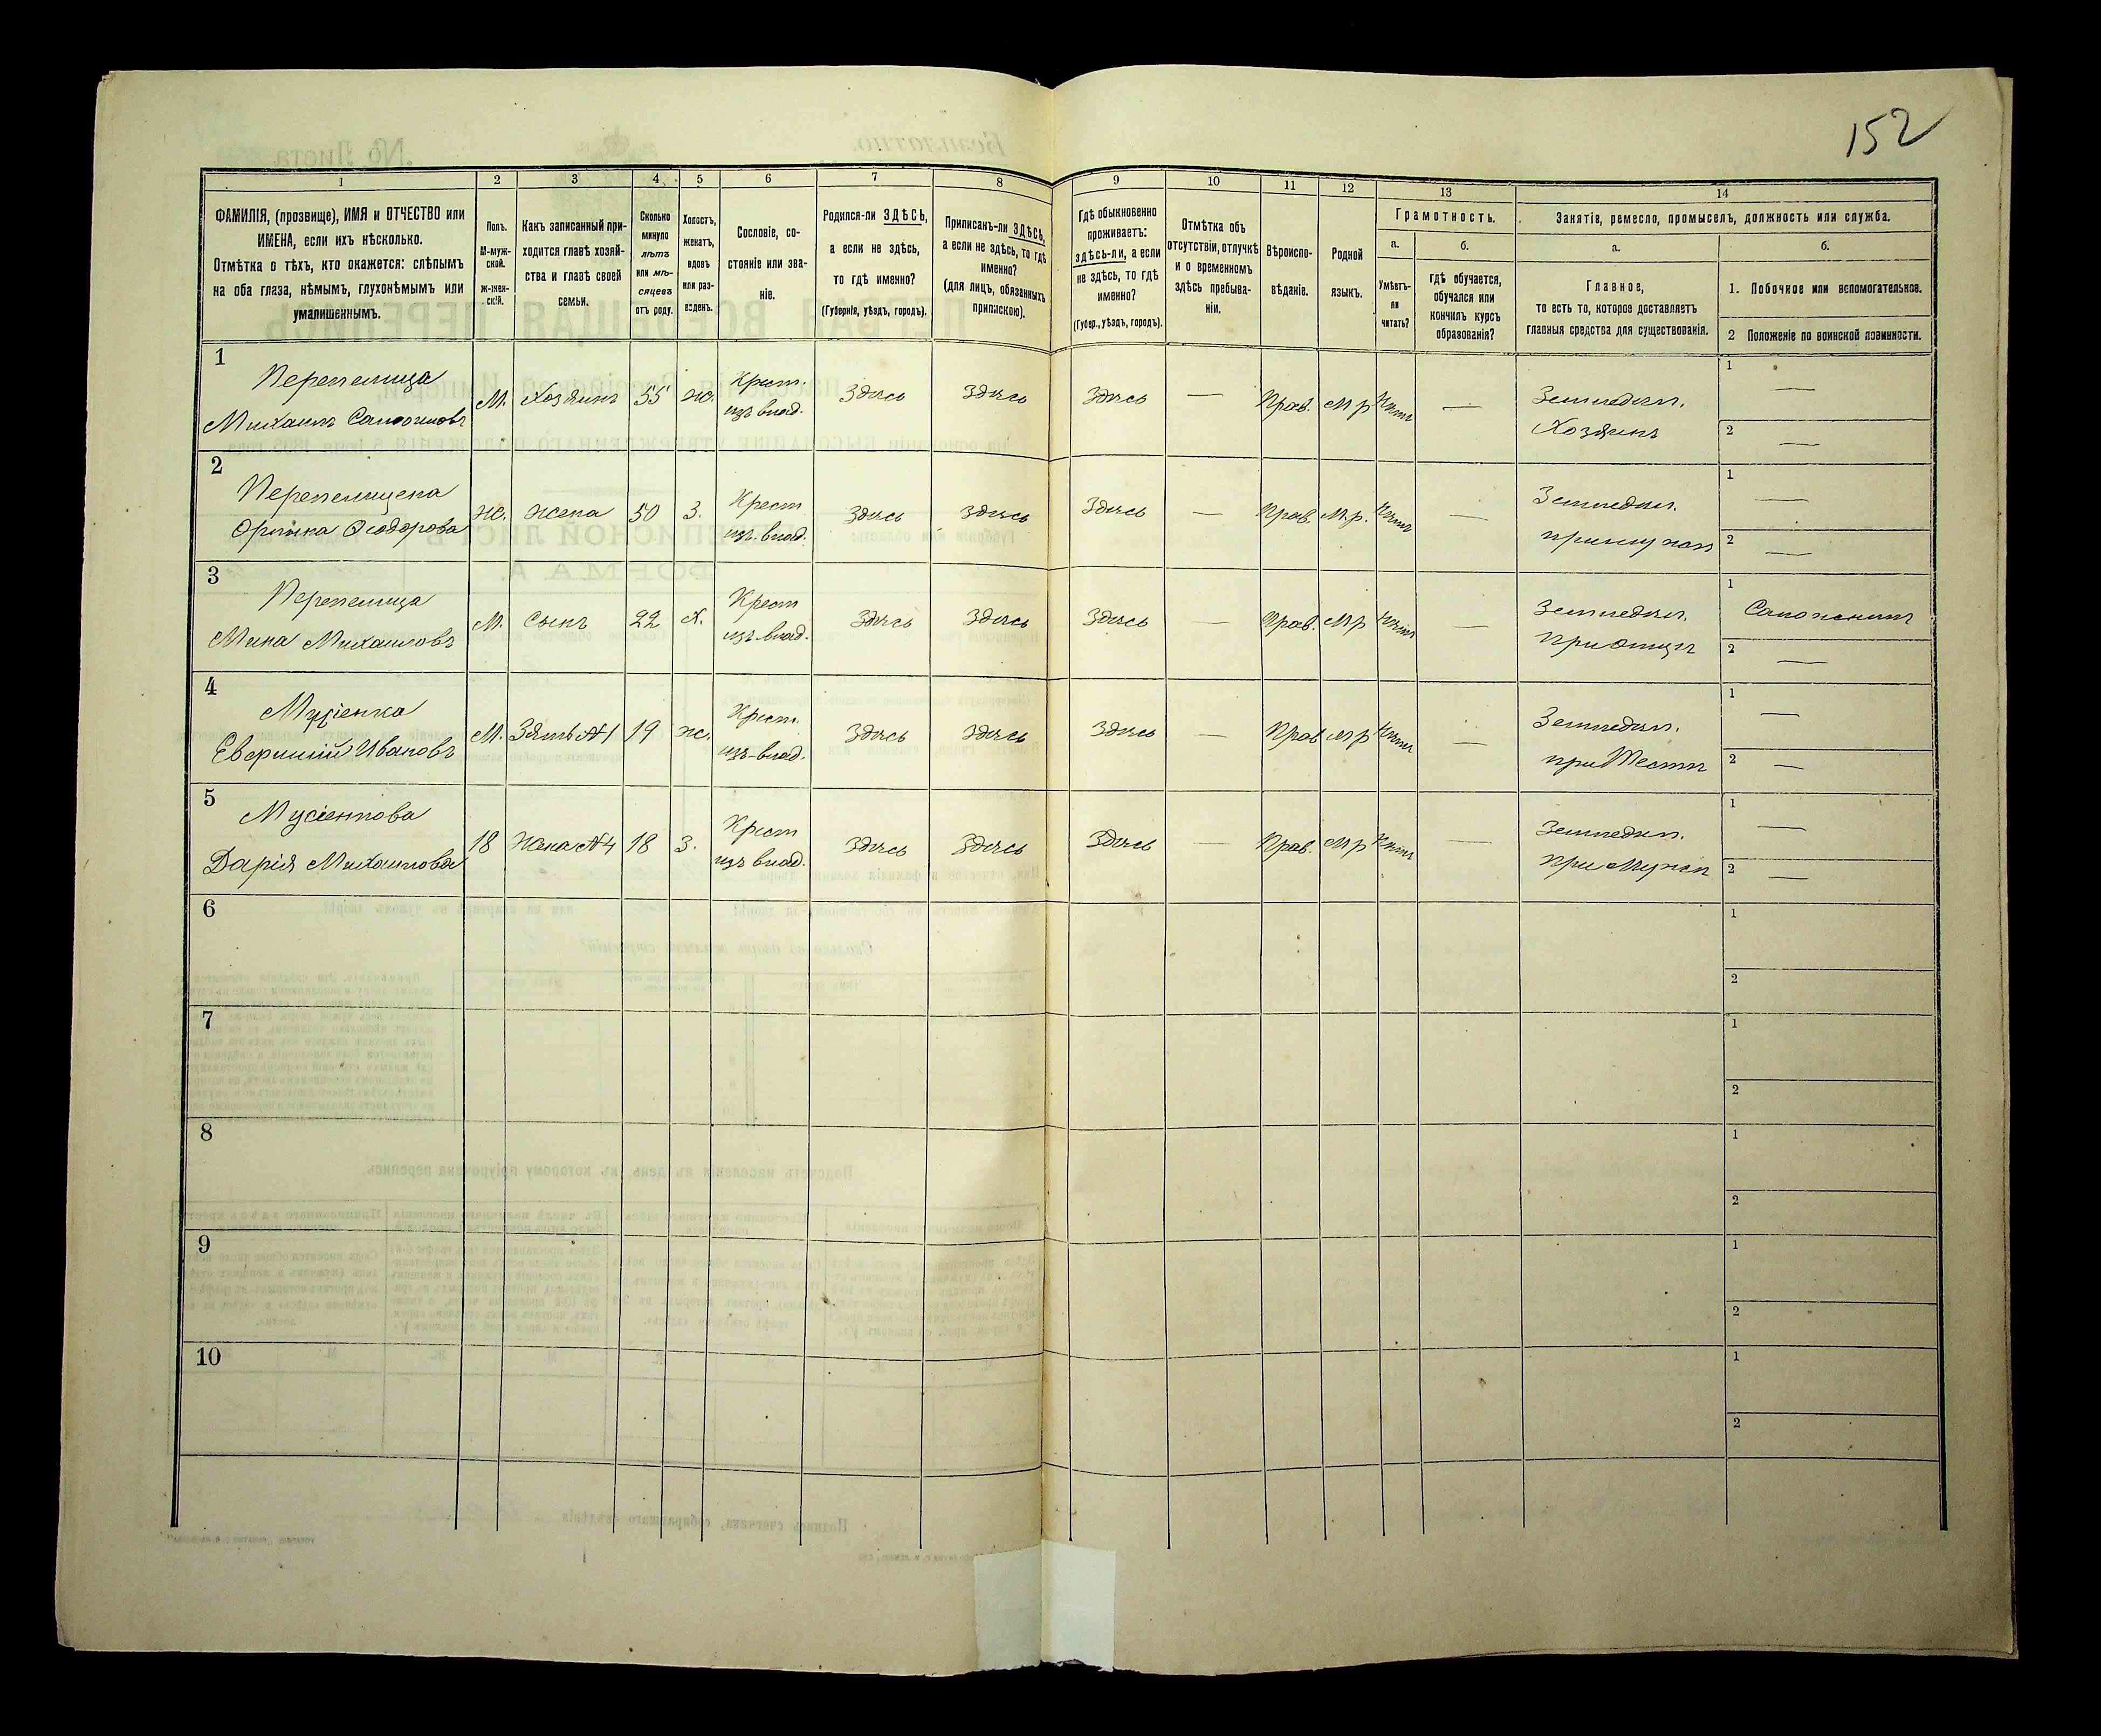 152
1 2 3 4 5 6 7 8 9 10 11 12 13 14
ФАМИЛІЯ, (прозвище), ИМЯ и ОТЧЕСТВО или
ИМЕНА, если ихъ нѣсколько.
Отмѣтка о тѣхъ, кто окажется: слѣпымъ
на оба глаза, нѣмымъ, глухонѣмымъ или
умалишеннымъ.
Полъ.
М-муж-
ской.
ж-жен-
скій.
Какъ записанный при-
ходится главѣ хозяй-
ства и главѣ своей
семьи.
Сколько
минуло
лѣтъ
или мѣ-
сяцевъ
отъ роду.
Холостъ,
женатъ,
вдовъ
или раз-
веденъ.
Сословіе, со-
стояніе или зва-
ніе.
Родился-ли ЗДѢСЬ,
а если не здѣсь,
то гдѣ именно?
(Губернія, уѣздъ, городъ).
Приписанъ-ли ЗДѢСЬ,
а если не здѣсь, то гдѣ
именно?
(для лицъ, обязанныхъ
припискою).
Гдѣ обыкновенно
проживаетъ:
здѣсь-ли, а если
не здѣсь, то гдѣ
именно?
(Губер., уѣздъ, городъ).
Отмѣтка объ
отсутствіи, отлучкѣ
и о временномъ
здѣсь пребыва-
ніи.
Вѣроиспо-
вѣданіе.
Родной
языкъ.
Грамотность.
а.
Умѣетъ-
ли
читать?
б.
гдѣ обучается,
обучался или
кончилъ курсъ
образованія?
Занятія, ремесло, промыселъ, должность или служба.
а.
Главное,
то есть то, которое доставляетъ
главныя средства для существованія.
б.
1. Побочное или вспомогательное.
2 Положеніе по воинской повинности.
1
Перепелица
Михаилъ
М. Хозяинъ 55 ж. Крест. изъ влад. Здѣсь Здѣсь Здѣсь — Прав. М р Нѣтъ — Земледѣл.
Хозяинъ
1 —
2 —
2
Перепелицева
Орынка Ѳеодорова
Ж. Жена 50 З. Крест изъ-влад. Здѣсь Здѣсь Здѣсь — Прав. М.р. Нѣтъ — Земледѣл.
при мужѣ
1 —
2 —
3
Перепелица
Мина Михаиловъ
М. Сынъ 22 Х. Крест изъ-влад. Здѣсь Здѣсь Здѣсь — Прав. М р Нѣтъ — Земледѣл.
при отцѣ
1 Сапожникъ
2 —
4
Мусіенко
Евфимій Ивановъ
М. Зять №1 19 ж. Крест. изъ-влад. Здѣсь Здѣсь Здѣсь — Прав М р Нѣтъ — Земледѣл.
при Тестѣ
1 —
2 —
5
Мусіенкова
Дарія Михаилова
18 Жена №4 18 З. Крест изъ влад. Здѣсь Здѣсь Здѣсь — Прав. М р Нѣтъ — Земледѣл.
при Мужѣ
1 —
2 —
6
1
2
7
1
2
8
1
2
9
1
2
10
1
2